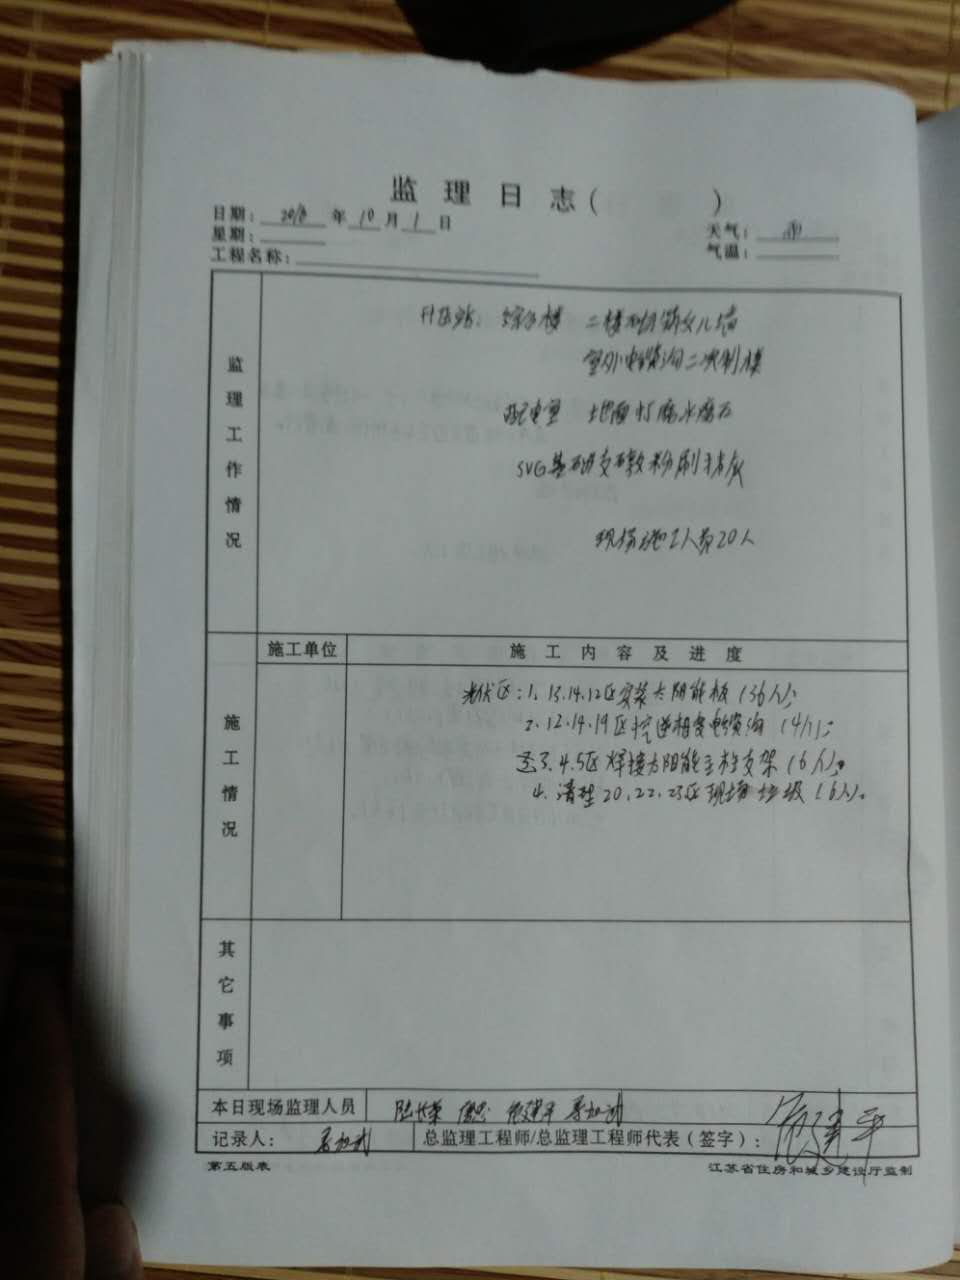 监理日志( )
日期: 2018 年 10 月 1 日
天气: 雨
星期:
气温:
工程名称:
监理工作情况
升压站: 综合楼 二楼砌筑女儿墙
室外电缆沟二次制模
配电室 地面打磨水磨石
SVG基础支墩粉刷
现场施工人员20人
施工单位
施工内容及进度
施工情况
光伏区:1.13.14.12区安装太阳能板(36人);
2.12.14.19区挖逆相变电缆沟
3.4.5区焊接太阳能主柱支架(6人);
4.清理20.22.23区现场垃圾(6人)。
其它事项
本日现场监理人员
记录人:
总监理工程师/总监理工程师代表(签字):
第五版表
江苏省住房和城乡建设厅监制